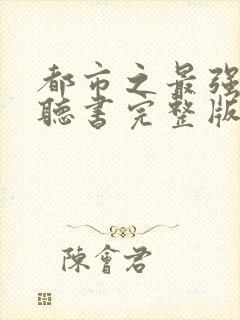 都市之最强
聽書完整版
陳會君